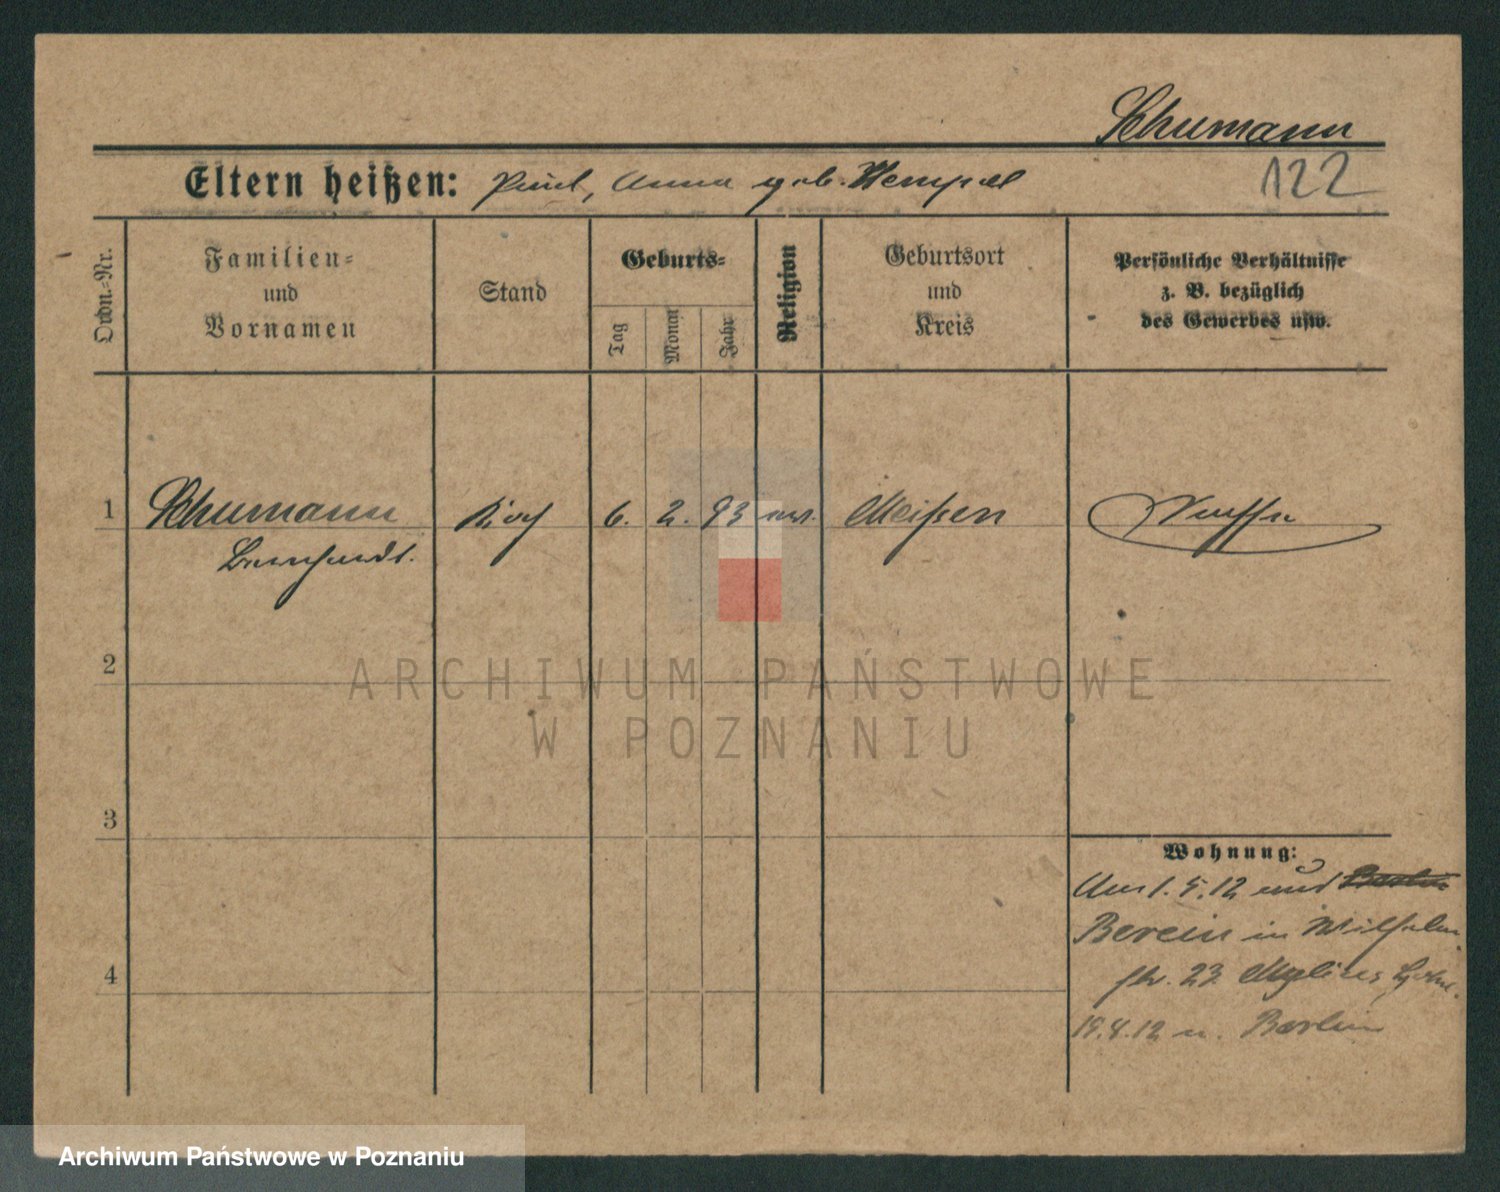 Schumann
Eltern heißen: Paul, Anna geb. Hempel
122
Ordn.-Nr.
Familien-
und
Vornamen
Stand
Geburts-
Tag
Monat
Jahr
Religion
Geburtsort
und
Kreis
Persönliche Verhältnisse
z. B. bezüglich
des Gewerbes usw.
1 Schumann Koch 6. 2. 93 Meißen
Bernhardt.
2
ARCHIWUM PAŃSTWOWE
W POZNANIU
3
Wohnung:
1.5.12
in Wilhelm
str. 23. Mylius Hotel.
4
19.8.12 n. Berlin
Archiwum Państwowe w Poznaniu